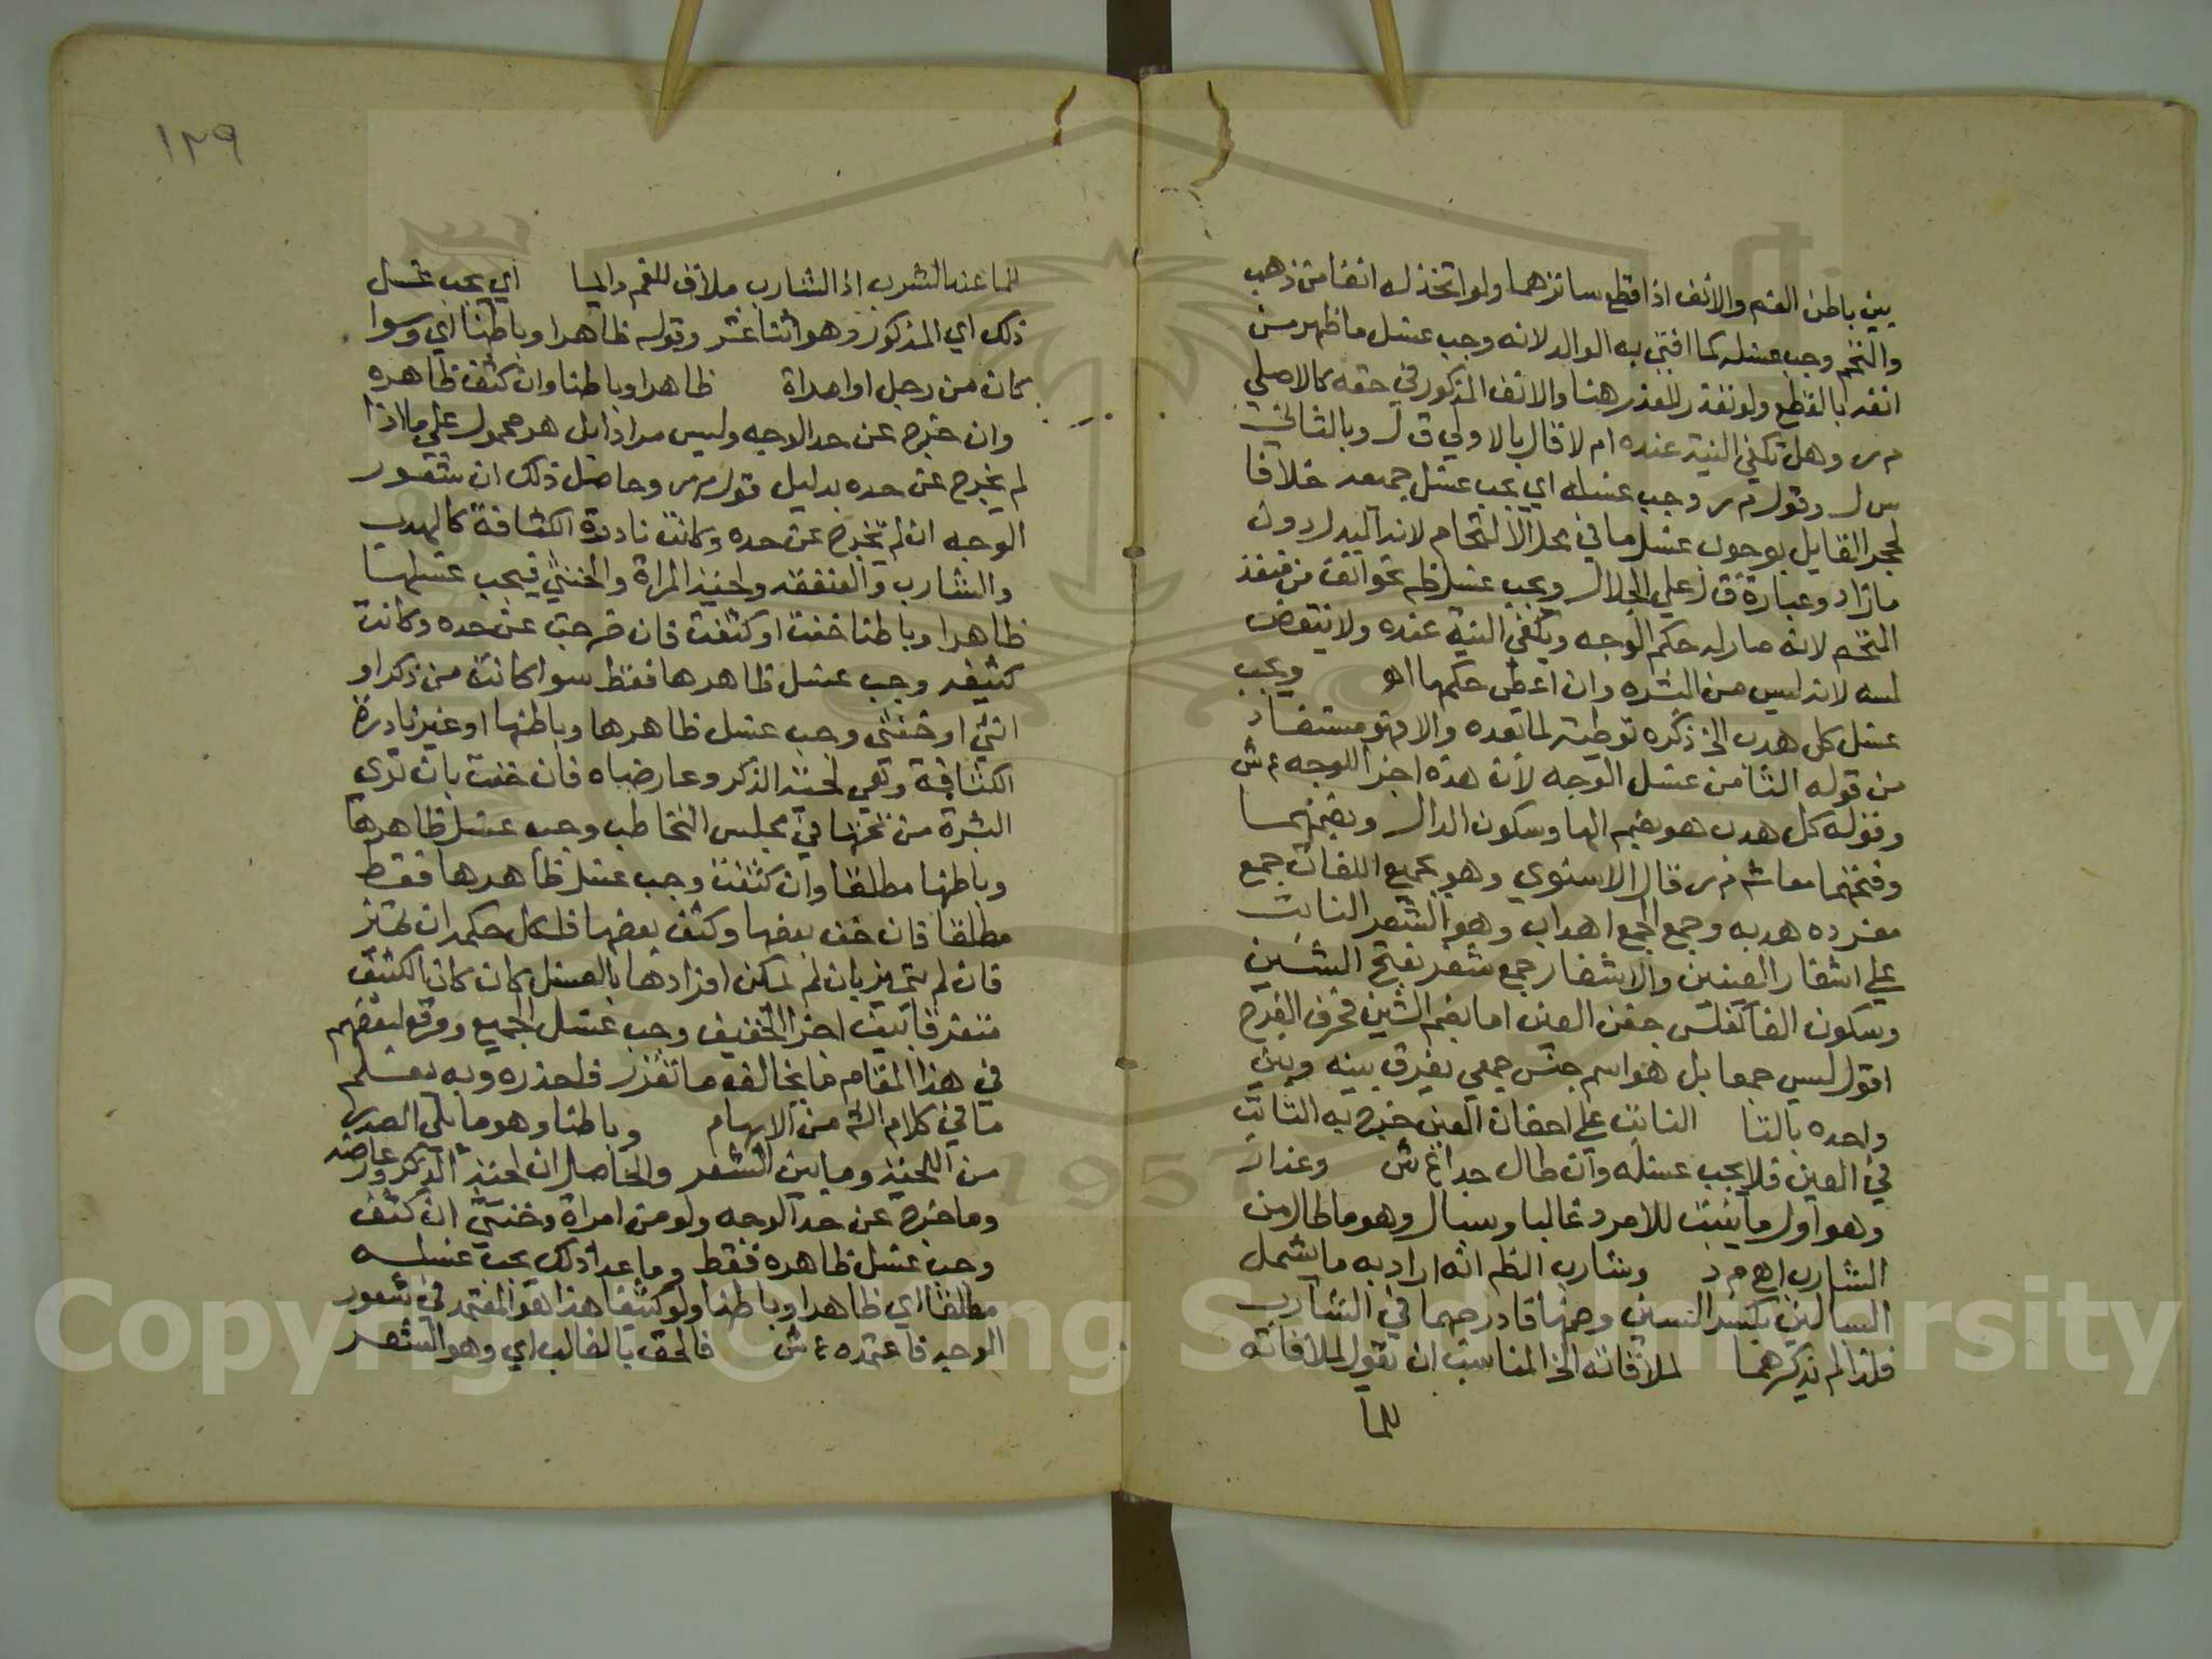 بين باطن الفم والانف اذا قطع ساترهما ولو اتخذ له انفا من ذهب
والتحم وجب غسله كما افتى به الوالد لانه وجب غسل ما ظهر من
انفه بالقطع ولو تعذر للعذر هنا والانف المذكور في حقه كالاصلي
م ر وهل تكفي النية عنده ام لا قال بالاولي ق ل وبالثاني
س ل وقول م ر وجب غسله اي يجب غسل جميعه خلافا
لحجر القايل بوجوب غسل ما في محل الالتحام لانه البدل دون
ما زاد وعبارة ق ل علي الجلال ويجب غسل نحو انف من نقد
التحم لانه صار له حكم الوجه وتكفي النية عنده ولا ينتقض
لمسه لانه ليس من البشره وان اعطي حكمها اهـ ويجب
غسل كل هدب الخ ذكره توطئة لما بعده والا فهو مستفاد
من قوله الثامن غسل الوجه لان هذه اجزا الوجه ع ش
وقوله كل هدب هو بضم الها وسكون الدال وبضمهما
وفتحهما معا ش م ر قال الاسنوي وهو بجميع اللغات جمع
مفرده هدبه وجمع الجمع اهداب وهو الشعر النابت
علي اشفار العينين والاشفار جمع شفر بفتح الشين
وسكون الفا كفلس جفن العين اما بضم الشين فحرف الفرج
اقول ليس جمعا بل هو اسم جنس جمعي يفرق بينه وبين
واحده بالتا النابت علي اجفان العين خرج به النابت
في العين فلا يجب غسله وان طال جدا ع ش وعذار
وهو اول ما ينبت للامرد غالبا وسبال وهو ما طال من
الشارب اهـ م د وشارب الظم انه اراد به ما يشمل
السبالين بكسر السين وضمها فادرجهما في الشارب
فلذا لم يذكرهما لملاقاته الخ المناسب ان يقول لملاقاته
للما
١٢٩
للما عند الشرب اذ الشارب ملاق للفم والما اي يجب غسل
ذلك اي المذكور وهو اثنا عشر وقوله ظاهرا وباطنا اي وسوا
كان من رجل او امراة ظاهرا وباطنا وان كثف ظاهره
وان خرج عن حد الوجه وليس مرادا بل هو محمول علي ما اذا
لم يخرج عن حده بدليل قول م ر وحاصل ذلك ان شعور
الوجه ان لم تخرج عن حده وكانت نادرة الكثافة كالهدب
والشارب والعنفقه ولحية المراة والخنثي فيجب غسلها
ظاهرا وباطنا خفت او كثفت فان خرجت عن حده وكانت
كثيفه وجب غسل ظاهرها فقط سوا كانت من ذكر او
انثي او خنثي وجب غسل ظاهرها وباطنها او غير نادرة
الكثافة وهي لحية الذكر وعارضاه فان خفت بان تري
البشرة من تحتها في مجلس التخاطب وجب غسل ظاهرها
وباطنها مطلقا وان كثفت وجب غسل ظاهرها فقط
مطلقا فان خف بعضها وكثف بعضها فلكل حكمه ان تميز
فان لم يتميز بان لم يمكن افرادها بالغسل كان كان الكثيف
متفرقا بين اجزا الخفيف وجب غسل الجميع ووقع لبعضهم
في هذا المقام ما يخالف ما تقرر فاحذره وبه يعلم
ما في كلام الش من الابهام وباطنا وهو ما يلي الصدر
من اللحية وما بين الشعر والحاصل ان لحية الذكر وعارضه
وما خرج عن حد الوجه ولو من امراة وخنثي ان كثف
وجب غسل ظاهره فقط وما عدا ذلك يجب غسله
مطلقا اي ظاهرا وباطنا ولو كثيفا هذا هو المعتمد في شعور
الوجه فاعتمده ع ش فالحق بالغالب اي وهو الشعر
Copyright © King Saud University
1957